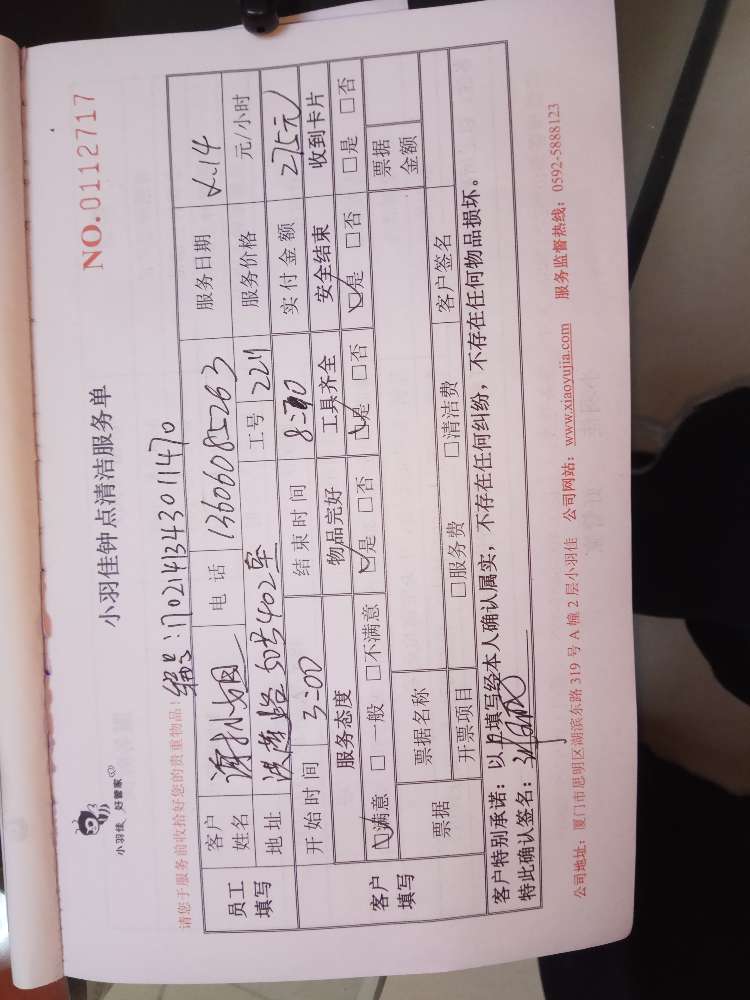 小羽佳 好管家
小羽佳钟点清洁服务单
NO.0112717
请您于服务前收拾好您的贵重物品！
编号：170214134301147 0
员工填写
客户姓名 谢小姐 电话 13606085263 服务日期 2.14
地址 洪莲路 505号402室 工号 2211 服务价格 元/小时
开始时间 3:00 结束时间 8:00 实付金额 275元
客户填写
服务态度 物品完好 工具齐全 安全结束 收到卡片
☑满意 □一般 □不满意 ☑是 □否 ☑是 □否 ☑是 □否 □是 □否
票据 票据名称 票据金额
开票项目 □服务费 □清洁费 客户签名
客户特别承诺：以上填写经本人确认属实，不存在任何纠纷，不存在任何物品损坏。
特此确认签名：
公司地址：厦门市思明区湖滨东路 319 号 A 幢 2 层小羽佳 公司网站：www.xiaoyujia.com 服务监督热线：0592-5888123